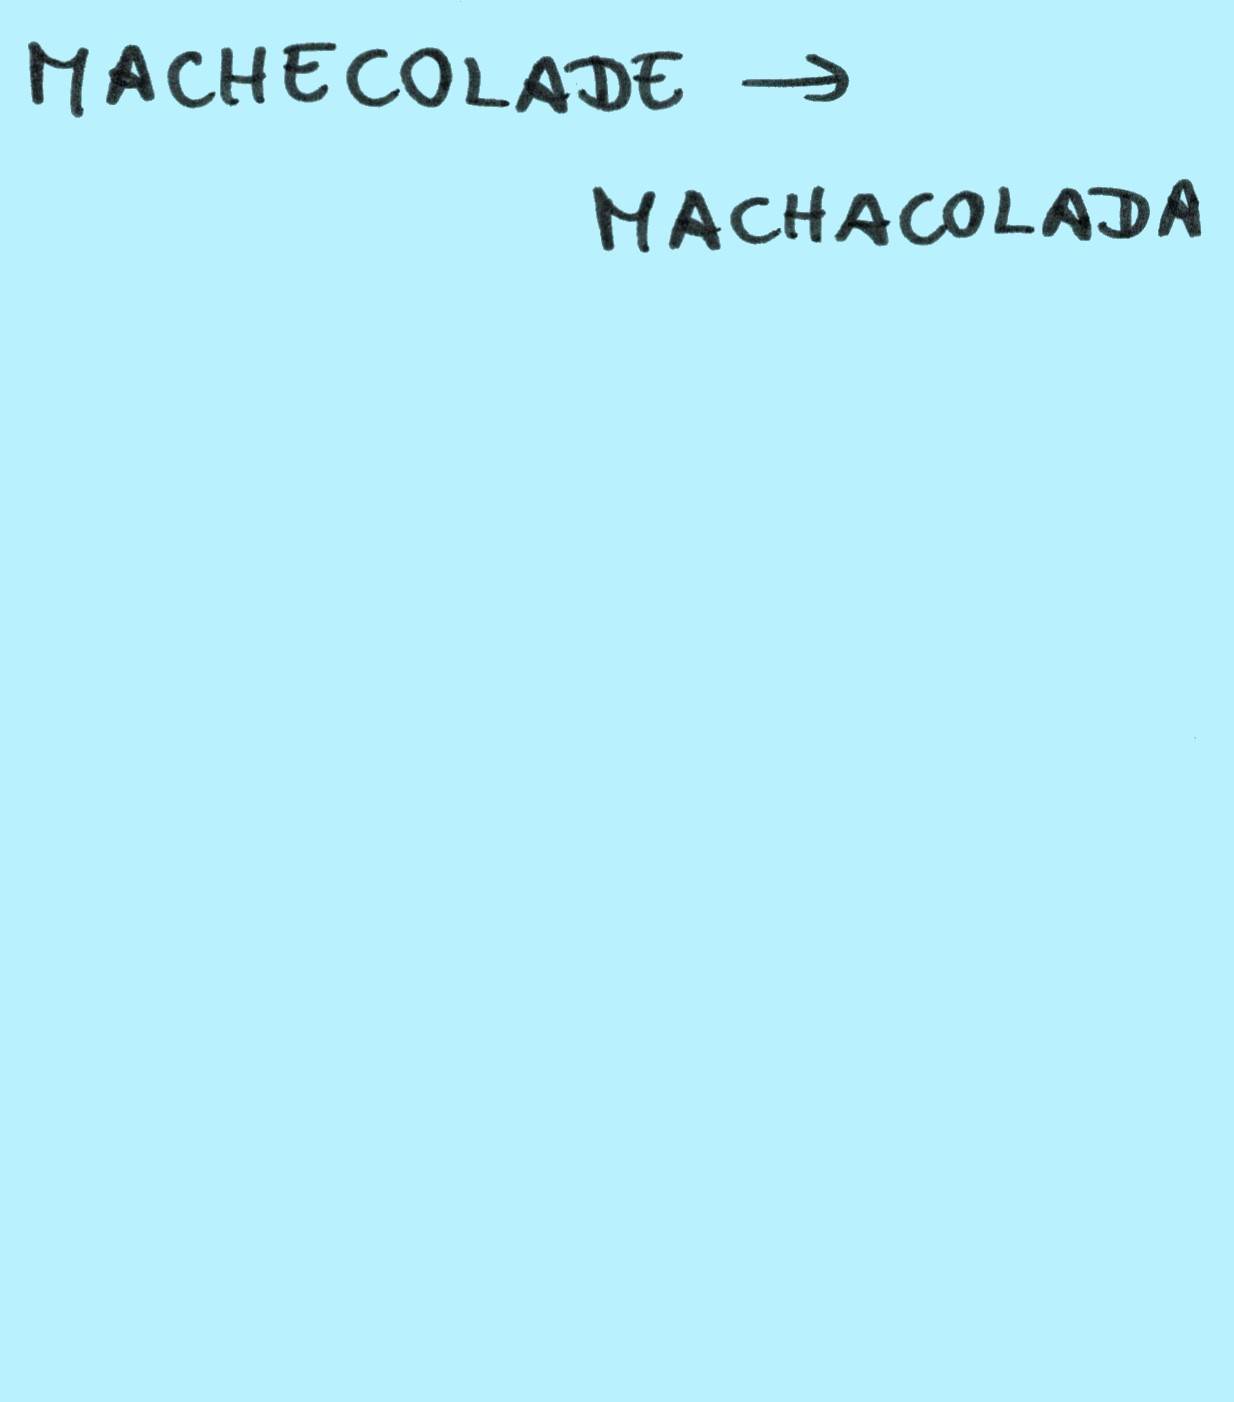 MACHECOLADE →
MACHACOLADA